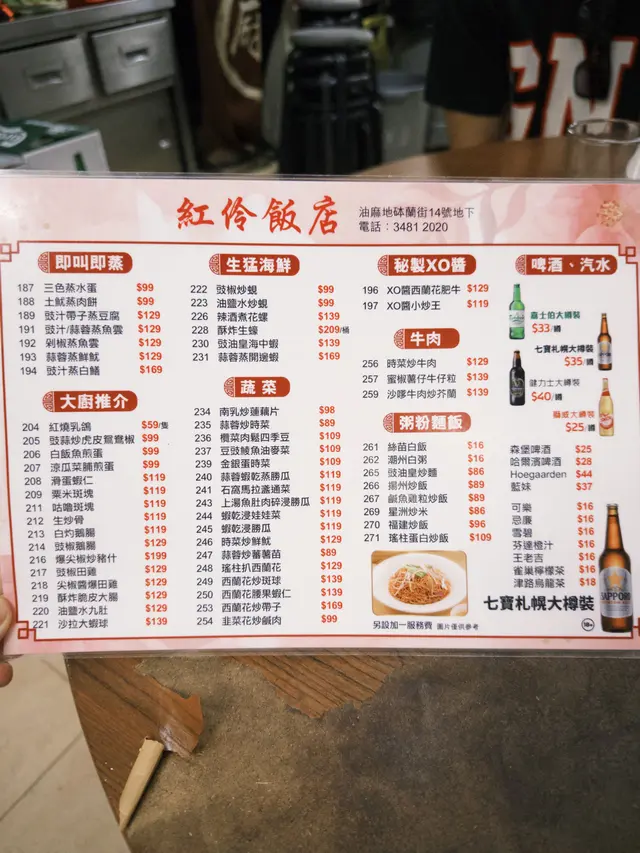 紅伶飯店
油麻地砵蘭街14號地下
電話：3481 2020
即叫即蒸
187 三色蒸水蛋 $99
188 土魷蒸肉餅 $99
189 豉汁帶子蒸豆腐 $129
191 豉汁/蒜蓉蒸魚雲 $129
192 剁椒蒸魚雲 $129
193 蒜蓉蒸鮮魷 $129
194 豉汁蒸白鱔 $169
大廚推介
204 紅燒乳鴿 $59/隻
205 豉蒜炒虎皮鴛鴦椒 $99
206 白飯魚煎蛋 $99
207 涼瓜菜脯煎蛋 $99
208 滑蛋蝦仁 $119
209 粟米斑塊 $119
211 咕嚕斑塊 $119
212 生炒骨 $119
213 白灼鵝腸 $119
214 豉椒鵝腸 $129
216 爆尖椒炒豬什 $199
217 豉椒田雞 $129
218 尖椒醬爆田雞 $129
219 酥炸脆皮大腸 $129
220 油鹽水九肚 $129
221 沙拉大蝦球 $139
生猛海鮮
222 豉椒炒蜆 $99
223 油鹽水炒蜆 $99
226 辣酒煮花螺 $139
228 酥炸生蠔 $209/桶
230 豉油皇海中蝦 $139
231 蒜蓉蒸開邊蝦 $169
蔬菜
234 南乳炒蓮藕片 $98
235 蒜蓉炒時菜 $89
236 欖菜肉鬆四季豆 $109
237 豆豉鯪魚油麥菜 $109
239 金銀蛋時菜 $109
240 蒜蓉蝦乾蒸勝瓜 $119
241 石窩馬拉盞通菜 $119
243 上湯魚肚肉碎浸勝瓜 $119
244 蝦乾浸娃娃菜 $119
245 蝦乾浸勝瓜 $119
246 時菜炒鮮魷 $129
247 蒜蓉炒蕃薯苗 $89
248 瑤柱扒西蘭花 $129
249 西蘭花炒斑球 $139
250 西蘭花腰果蝦仁 $139
253 西蘭花炒帶子 $169
254 韭菜花炒鹹肉 $99
秘製XO醬
196 XO醬西蘭花肥牛 $129
197 XO醬小炒王 $119
牛肉
256 時菜炒牛肉 $129
257 蜜椒薯仔牛仔粒 $139
259 沙嗲牛肉炒芥蘭 $139
粥粉麵飯
261 絲苗白飯 $16
262 潮州白粥 $16
265 豉油皇炒麵 $86
266 揚州炒飯 $89
267 鹹魚雞粒炒飯 $89
269 星洲炒米 $86
270 福建炒飯 $96
271 瑤柱蛋白炒飯 $109
另設加一服務費 圖片僅供參考
啤酒、汽水
嘉士伯大樽裝
$33/樽
七寶札幌大樽裝
$35/樽
健力士大樽裝
$40/樽
藍威大樽裝
$25/樽
森堡啤酒 $25
哈爾濱啤酒 $28
Hoegaarden $44
藍妹 $37
可樂 $16
忌廉 $16
雪碧 $16
芬達橙汁 $16
王老吉 $16
雀巢檸檬茶 $16
津路烏龍茶 $18
七寶札幌大樽裝
SAPPORO
18+